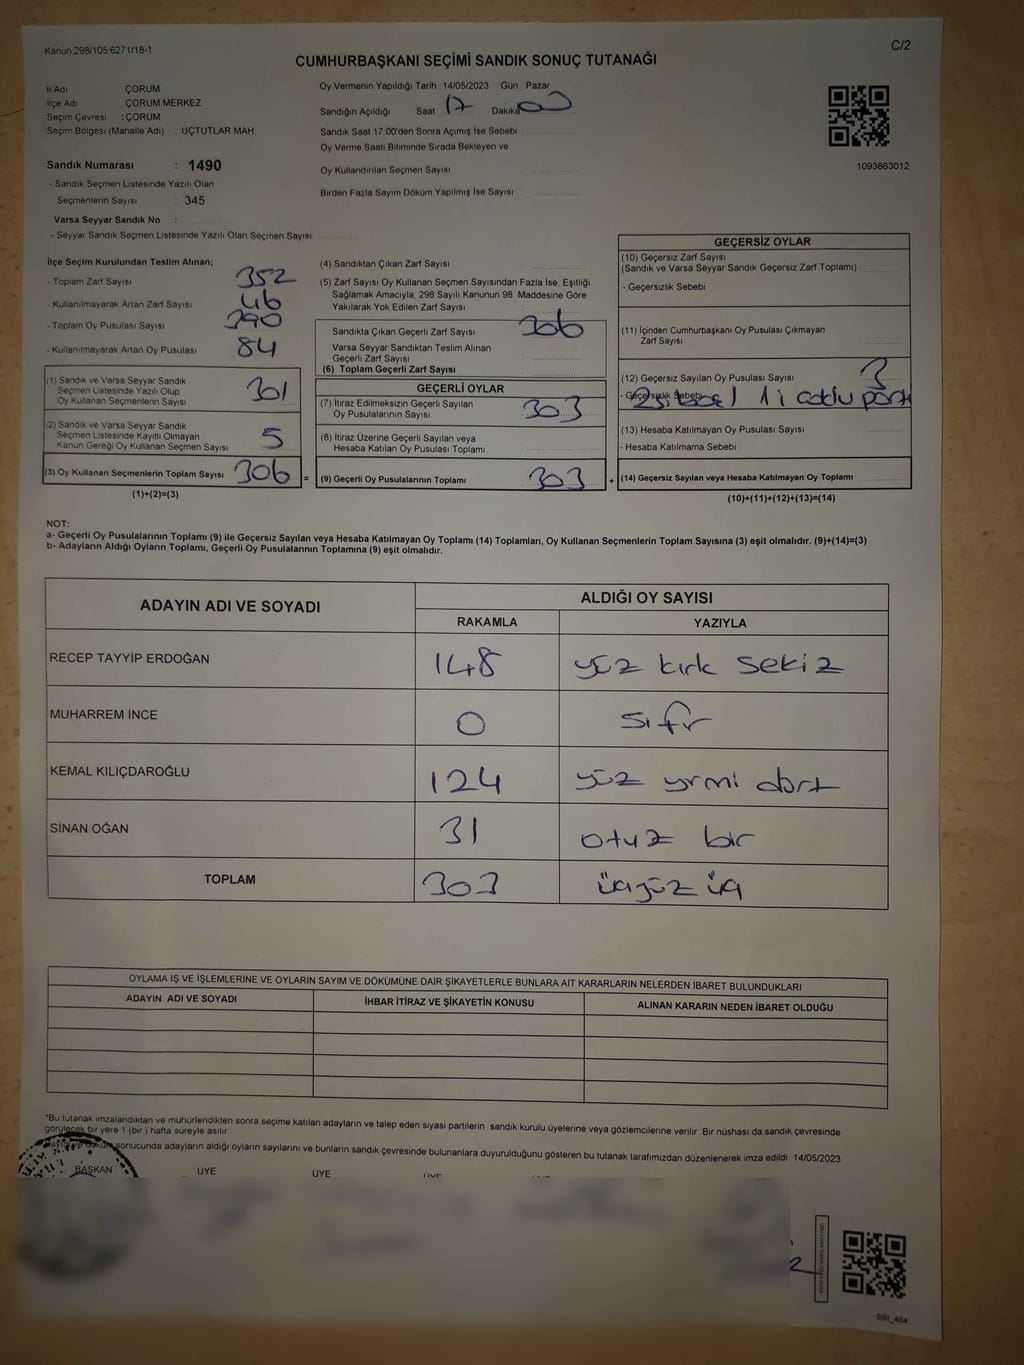 Kanun.298/105,6271/18-1
C/2
CUMHURBAŞKANI SEÇİMİ SANDIK SONUÇ TUTANAĞI
İl Adı ÇORUM
İlçe Adı ÇORUM MERKEZ
Seçim Çevresi : ÇORUM
Seçim Bölgesi (Mahalle Adı) : UÇTUTLAR MAH.
Oy Vermenin Yapıldığı Tarih : 14/05/2023 Gün : Pazar
Sandığın Açıldığı Saat 17 Dakika 00
Sandık Saat 17:00'den Sonra Açımış İse Sebebi :
Oy Verme Saati Bitiminde Sırada Bekleyen ve
Oy Kullandırılan Seçmen Sayısı :
Birden Fazla Sayım Döküm Yapılmış İse Sayısı :
1093863012
Sandık Numarası : 1490
- Sandık Seçmen Listesinde Yazılı Olan
Seçmenlerin Sayısı : 345
Varsa Seyyar Sandık No :
- Seyyar Sandık Seçmen Listesinde Yazılı Olan Seçmen Sayısı
İlçe Seçim Kurulundan Teslim Alınan;
- Toplam Zarf Sayısı 352
- Kullanılmayarak Artan Zarf Sayısı 46
- Toplam Oy Pusulası Sayısı 390
- Kullanılmayarak Artan Oy Pusulası 84
(1) Sandık ve Varsa Seyyar Sandık
Seçmen Listesinde Yazılı Olup
Oy Kullanan Seçmenlerin Sayısı 301
(2) Sandık ve Varsa Seyyar Sandık
Seçmen Listesinde Kayıtlı Olmayan
Kanun Gereği Oy Kullanan Seçmen Sayısı 5
(3) Oy Kullanan Seçmenlerin Toplam Sayısı 306 =
(1)+(2)=(3)
(4) Sandıktan Çıkan Zarf Sayısı :
(5) Zarf Sayısı Oy Kullanan Seçmen Sayısından Fazla İse, Eşitliği
Sağlamak Amacıyla, 298 Sayılı Kanunun 98. Maddesine Göre
Yakılarak Yok Edilen Zarf Sayısı :
Sandıkta Çıkan Geçerli Zarf Sayısı 306
Varsa Seyyar Sandıktan Teslim Alınan
Geçerli Zarf Sayısı :
(6) Toplam Geçerli Zarf Sayısı
GEÇERLİ OYLAR
(7) İtiraz Edilmeksizin Geçerli Sayılan
Oy Pusulalarının Sayısı 303
(8) İtiraz Üzerine Geçerli Sayılan veya
Hesaba Katılan Oy Pusulası Toplamı
(9) Geçerli Oy Pusulalarının Toplamı 303 +
GEÇERSİZ OYLAR
(10) Geçersiz Zarf Sayısı
(Sandık ve Varsa Seyyar Sandık Geçersiz Zarf Toplamı) :
- Geçersizlik Sebebi :
(11) İçinden Cumhurbaşkanı Oy Pusulası Çıkmayan
Zarf Sayısı :
(12) Geçersiz Sayılan Oy Pusulası Sayısı : 3
- Geçersizlik Sebebi
(13) Hesaba Katılmayan Oy Pusulası Sayısı :
- Hesaba Katılmama Sebebi :
(14) Geçersiz Sayılan veya Hesaba Katılmayan Oy Toplamı :
(10)+(11)+(12)+(13)=(14)
NOT:
a- Geçerli Oy Pusulalarının Toplamı (9) ile Geçersiz Sayılan veya Hesaba Katılmayan Oy Toplamı (14) Toplamları, Oy Kullanan Seçmenlerin Toplam Sayısına (3) eşit olmalıdır. (9)+(14)=(3)
b- Adayların Aldığı Oyların Toplamı, Geçerli Oy Pusulalarının Toplamına (9) eşit olmalıdır.
ADAYIN ADI VE SOYADI ALDIĞI OY SAYISI
RAKAMLA YAZIYLA
RECEP TAYYİP ERDOĞAN 148 yüz kırk sekiz
MUHARREM İNCE 0 sıfır
KEMAL KILIÇDAROĞLU 124 yüz yirmi dört
SİNAN OĞAN 31 otuz bir
TOPLAM 303 üçyüz üç
OYLAMA İŞ VE İŞLEMLERİNE VE OYLARIN SAYIM VE DÖKÜMÜNE DAİR ŞİKAYETLERLE BUNLARA AİT KARARLARIN NELERDEN İBARET BULUNDUKLARI
ADAYIN ADI VE SOYADI İHBAR İTİRAZ VE ŞİKAYETİN KONUSU ALINAN KARARIN NEDEN İBARET OLDUĞU
*Bu tutanak imzalandıktan ve mühürlendikten sonra seçime katılan adayların ve talep eden siyasi partilerin sandık kurulu üyelerine veya gözlemcilerine verilir. Bir nüshası da sandık çevresinde
görülecek bir yere 1 (bir) hafta süreyle asılır.
sonucunda adayların aldığı oyların sayılarını ve bunların sandık çevresinde bulunanlara duyurulduğunu gösteren bu tutanak tarafımızdan düzenlenerek imza edildi. 14/05/2023
BAŞKAN ÜYE ÜYE
SSI_404